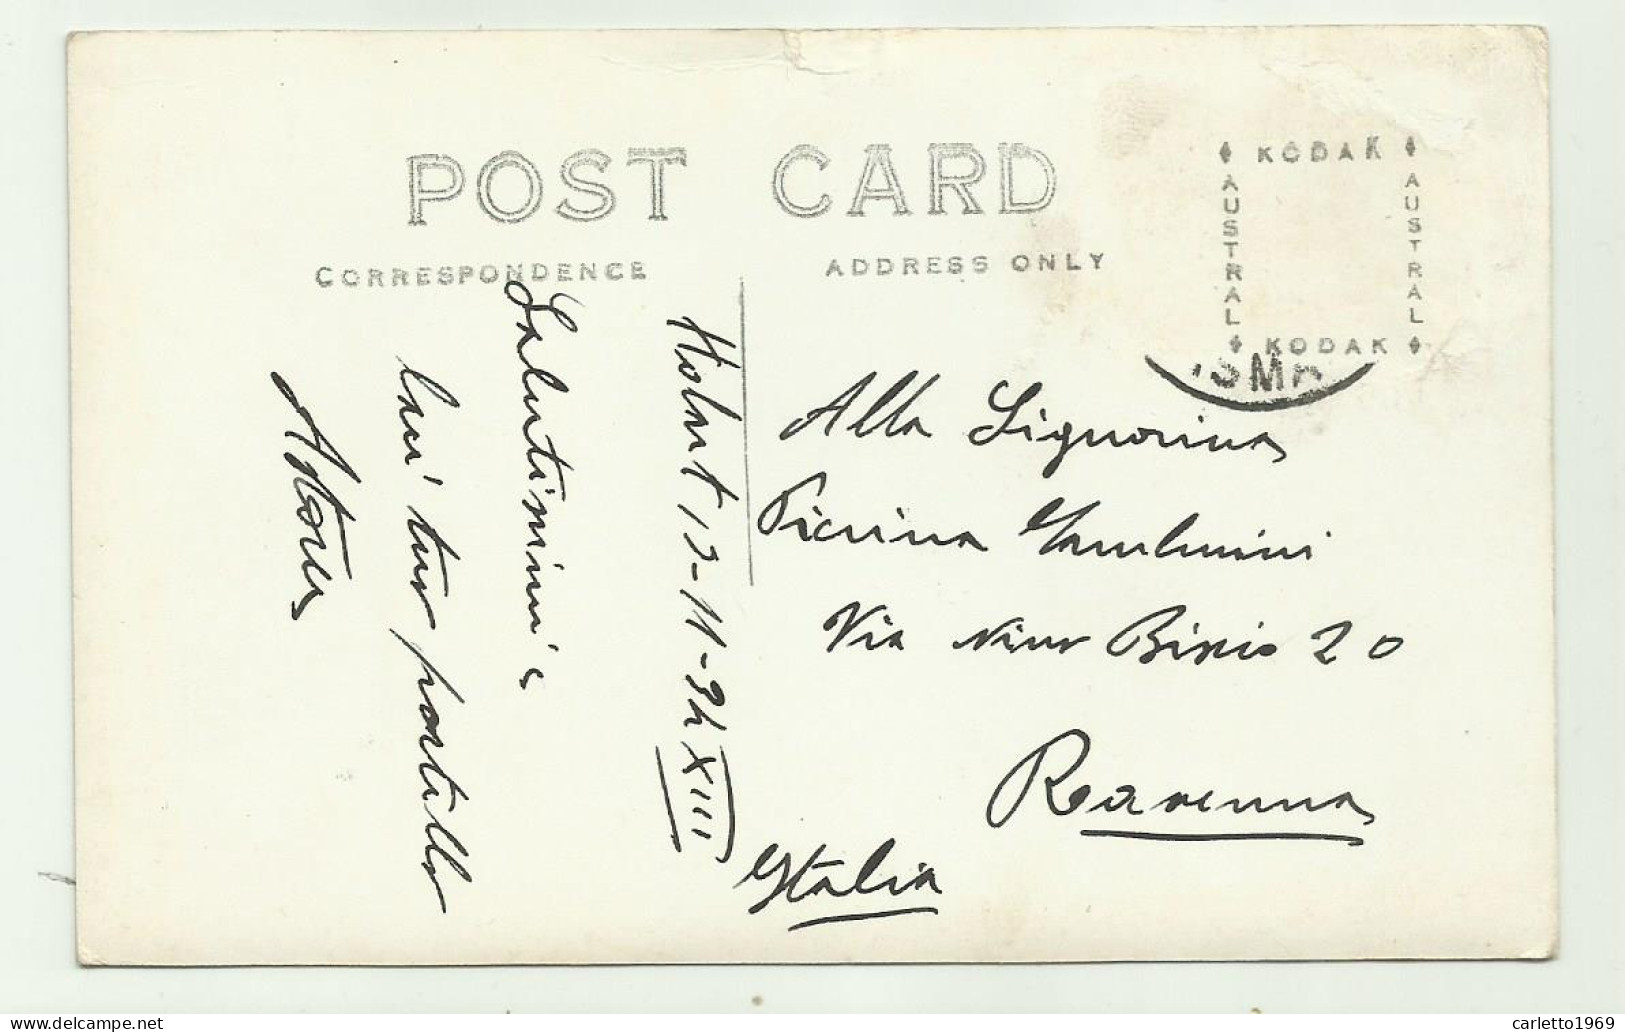 POST CARD
CORRESPONDENCE
ADDRESS ONLY
KODAK
AUSTRAL
AUSTRAL
KODAK
Hobart 12-11-34 XIII
Salutissimi e
Astore
Alla Signorina
Pierina
Via Nino Bixio 20
Ravenna
Italia
carletto1969